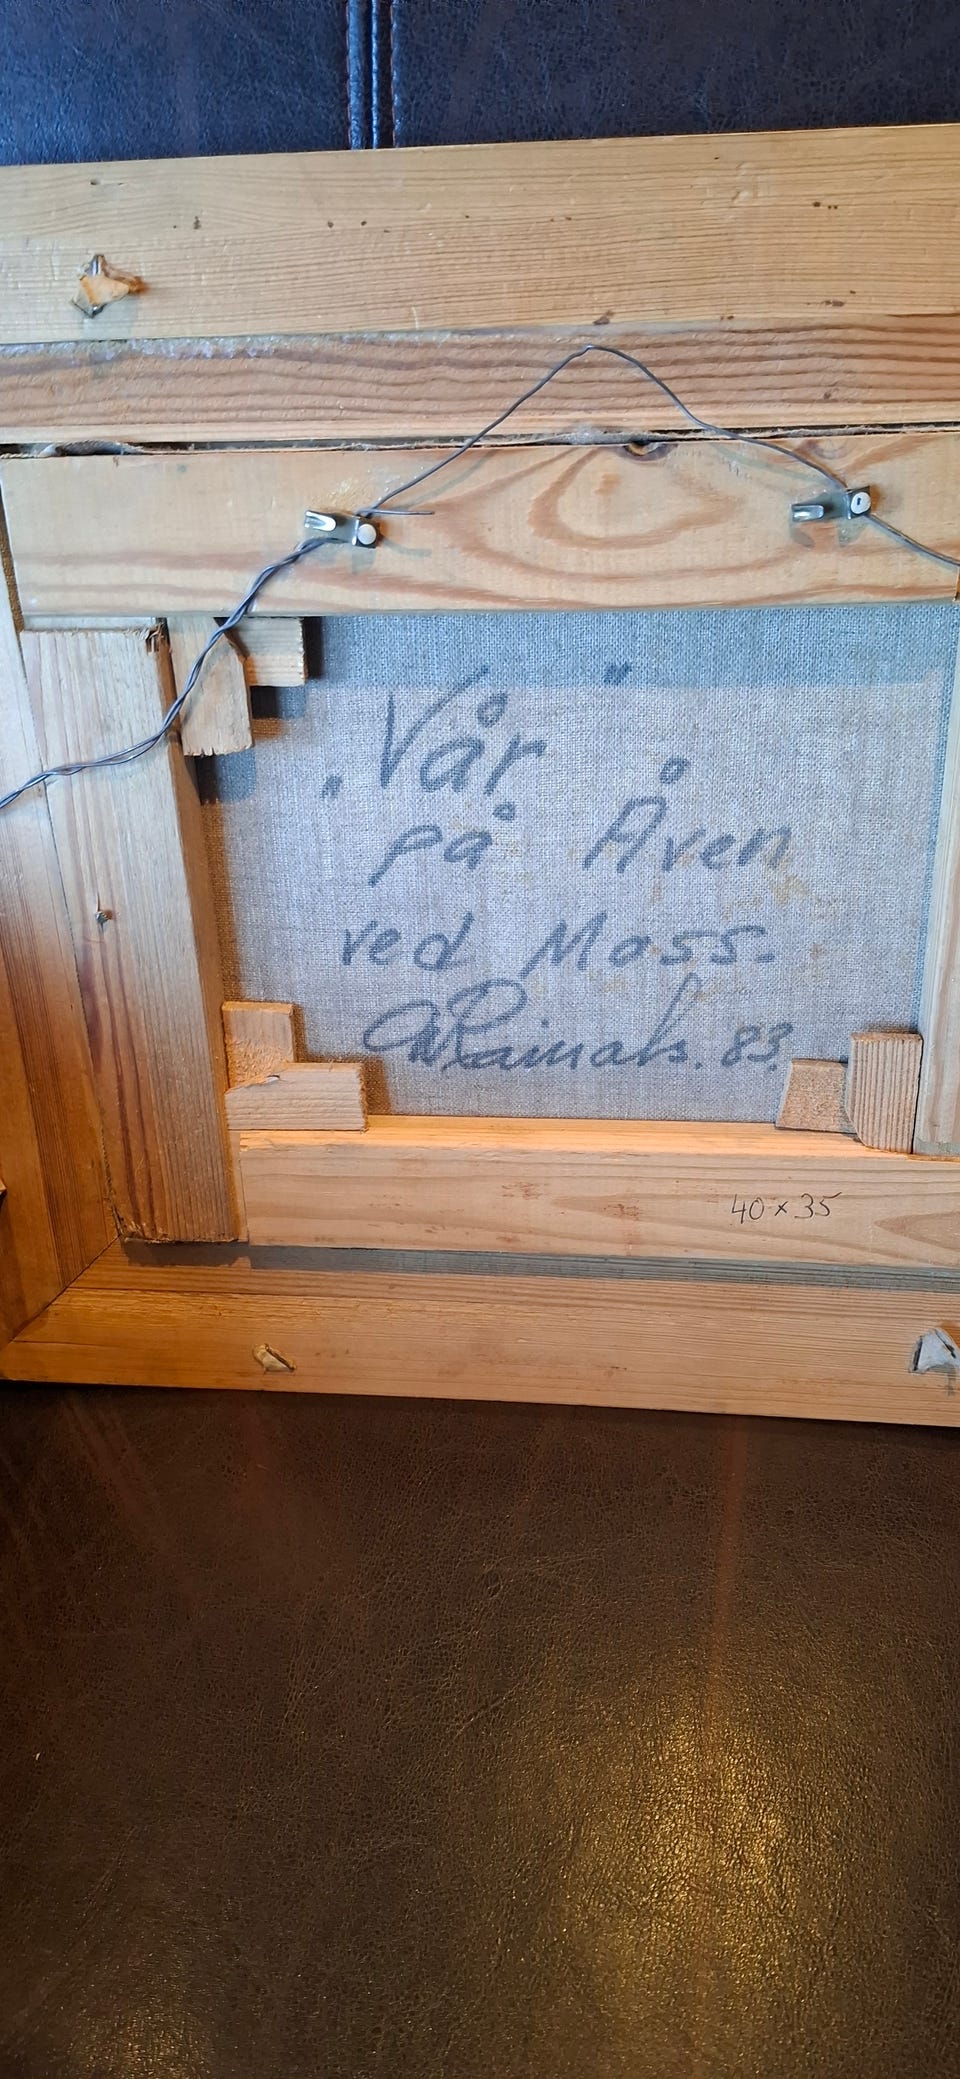 „Vår"
på Åven
ved Moss.
83.
40 x 35